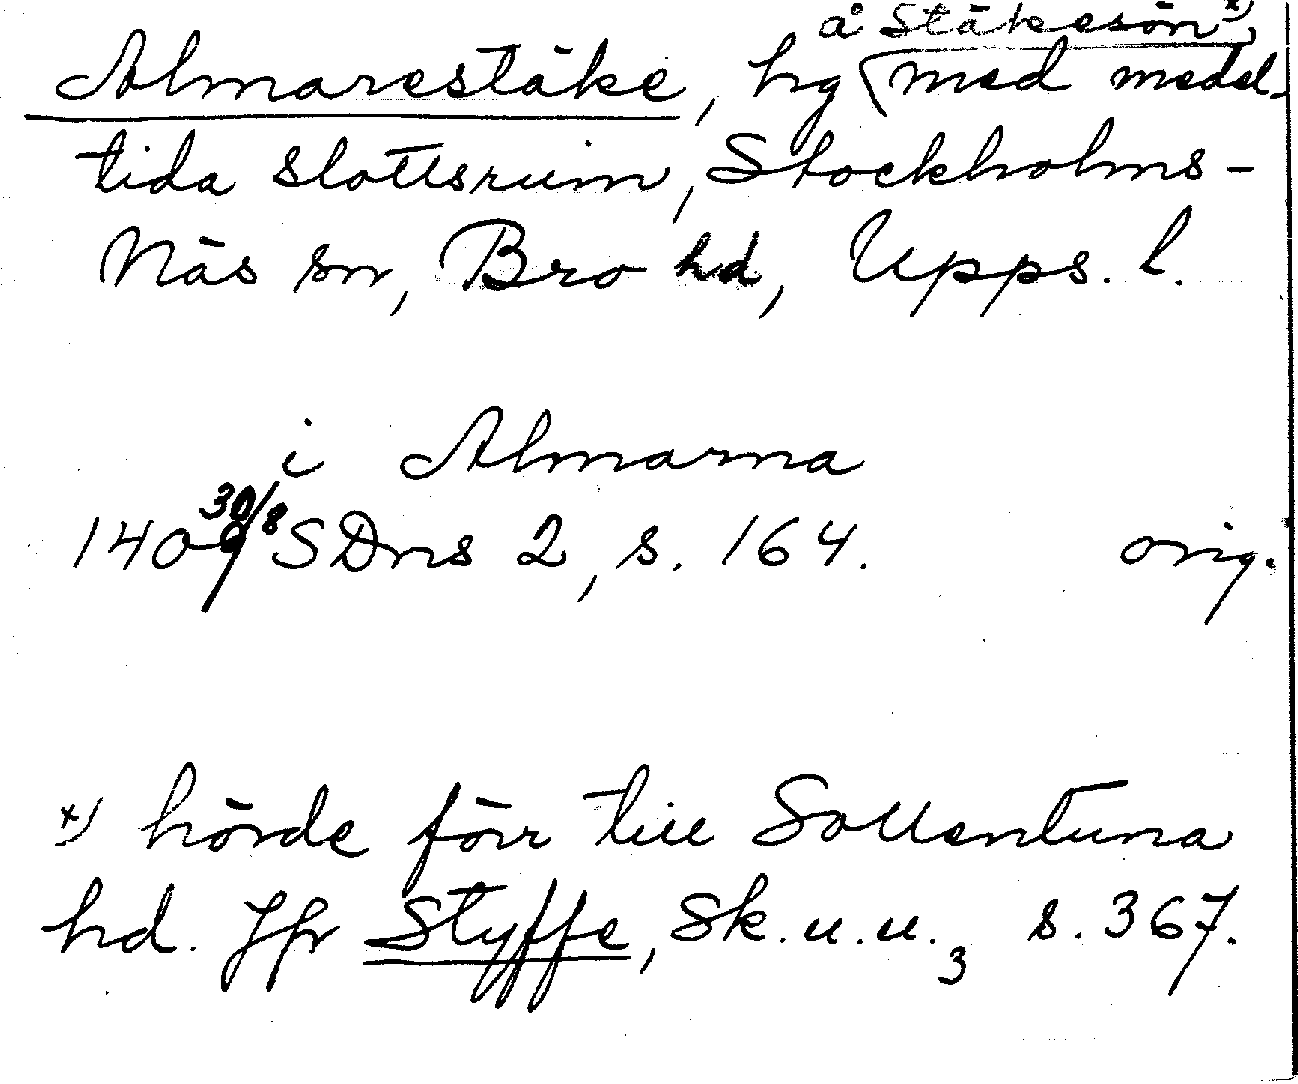 å Stäkesön x),
Almarestäke, hg (med medel-
tida slottsruin, Stockholms-
Näs sn, Bro hd, Upps. l.
i Almarna
1409 30/8 SDns 2, s. 164. orig.
x) hörde förr till Sollentuna
hd. Jfr Styffe, Sk.u.u.3 s. 367.